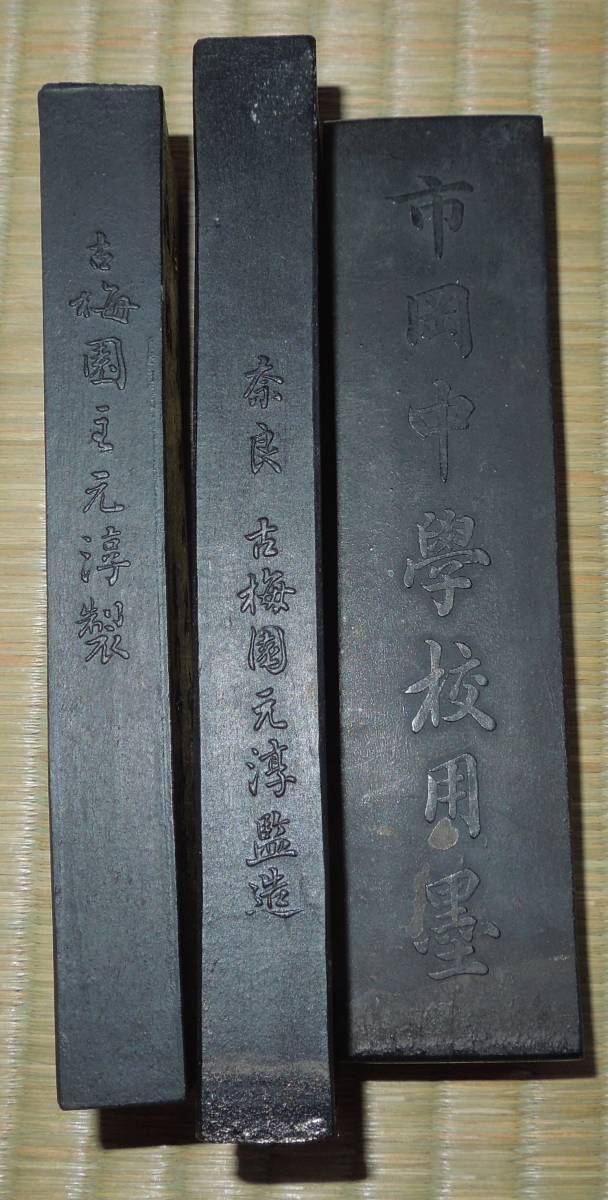 市岡中學校用墨
奈良 古梅園元淳監造
古梅園主元淳製